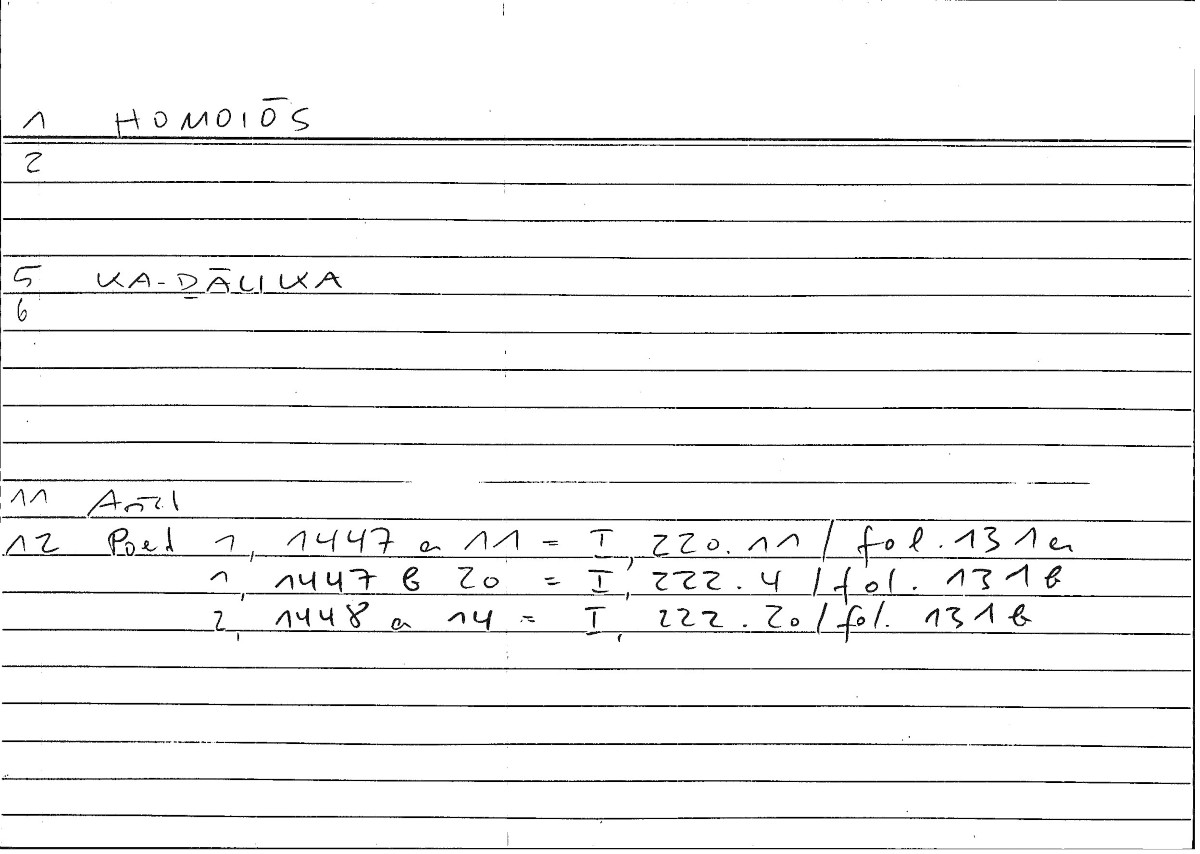 1 HOMOIŌS
2
5 KA-Ḏ̱ĀLIKA
6
11
12 Poet 1, 1447 a 11 = I, 220.11 / fol. 131a
1, 1447 b 20 = I, 222.4 / fol. 131b
2, 1448 a 14 = I, 222.20 / fol. 131b